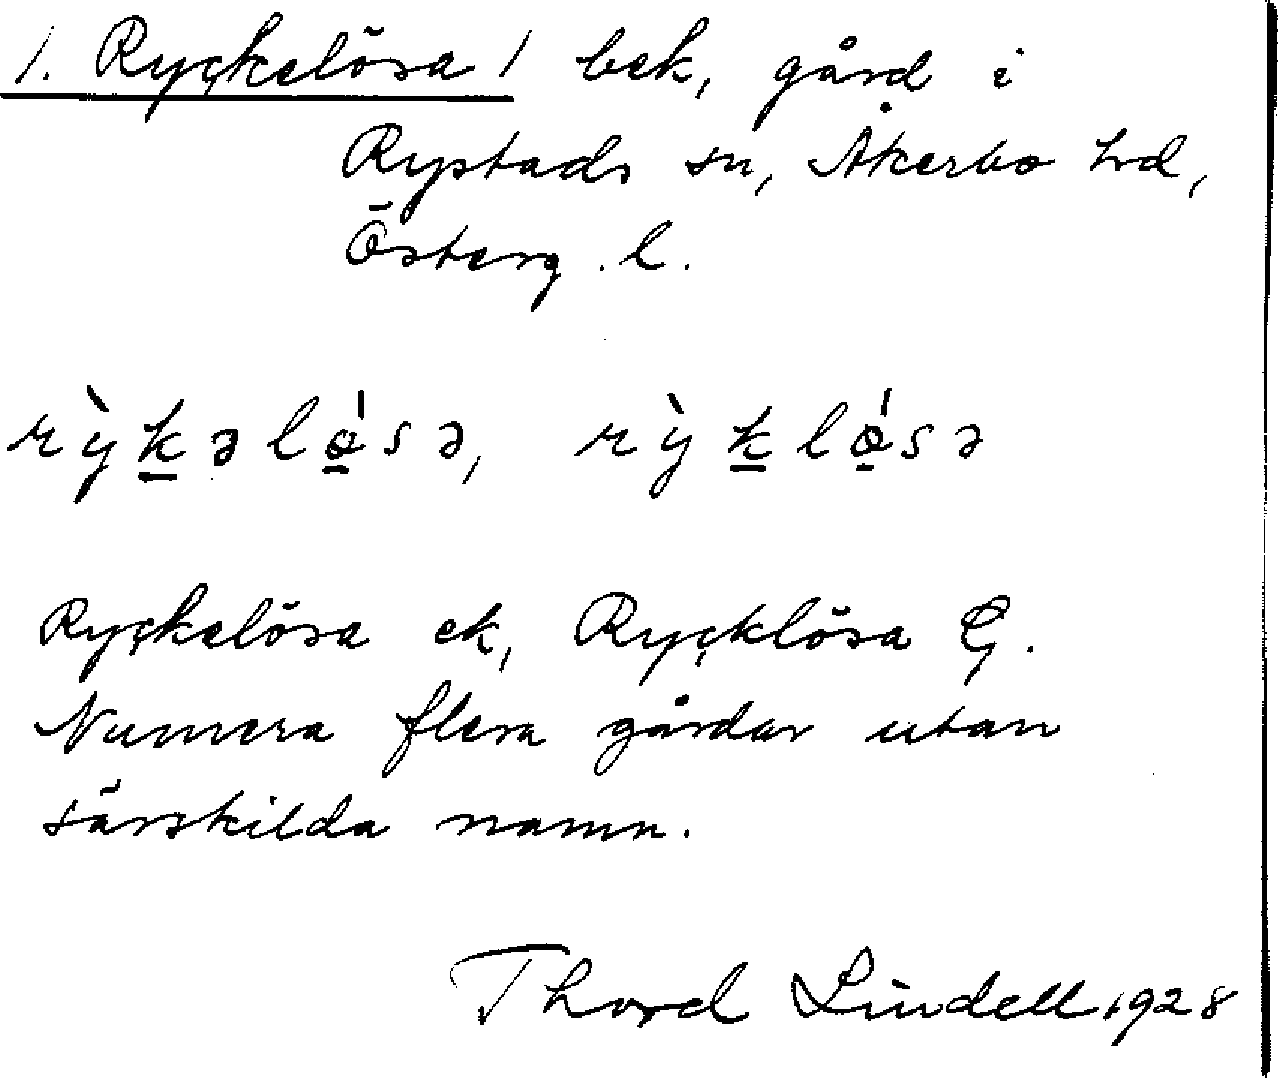 1. Ryckelösa / bek, gård i
Rystads sn, Åkerbo hd,
Österg. l.
rỳk̲əlǿ̲sə, rỳk̲lǿ̲sə
Ryckelösa ek, Rycklösa G.
Numera flera gårdar utan
särskilda namn.
Thord Lindell 1928